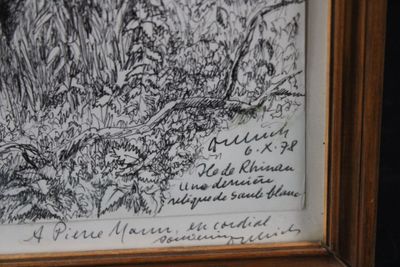 6.X.78
Ile de Rhinau
une dernière
relique de saule blanc
A Pierre Mann, en cordial
souvenir